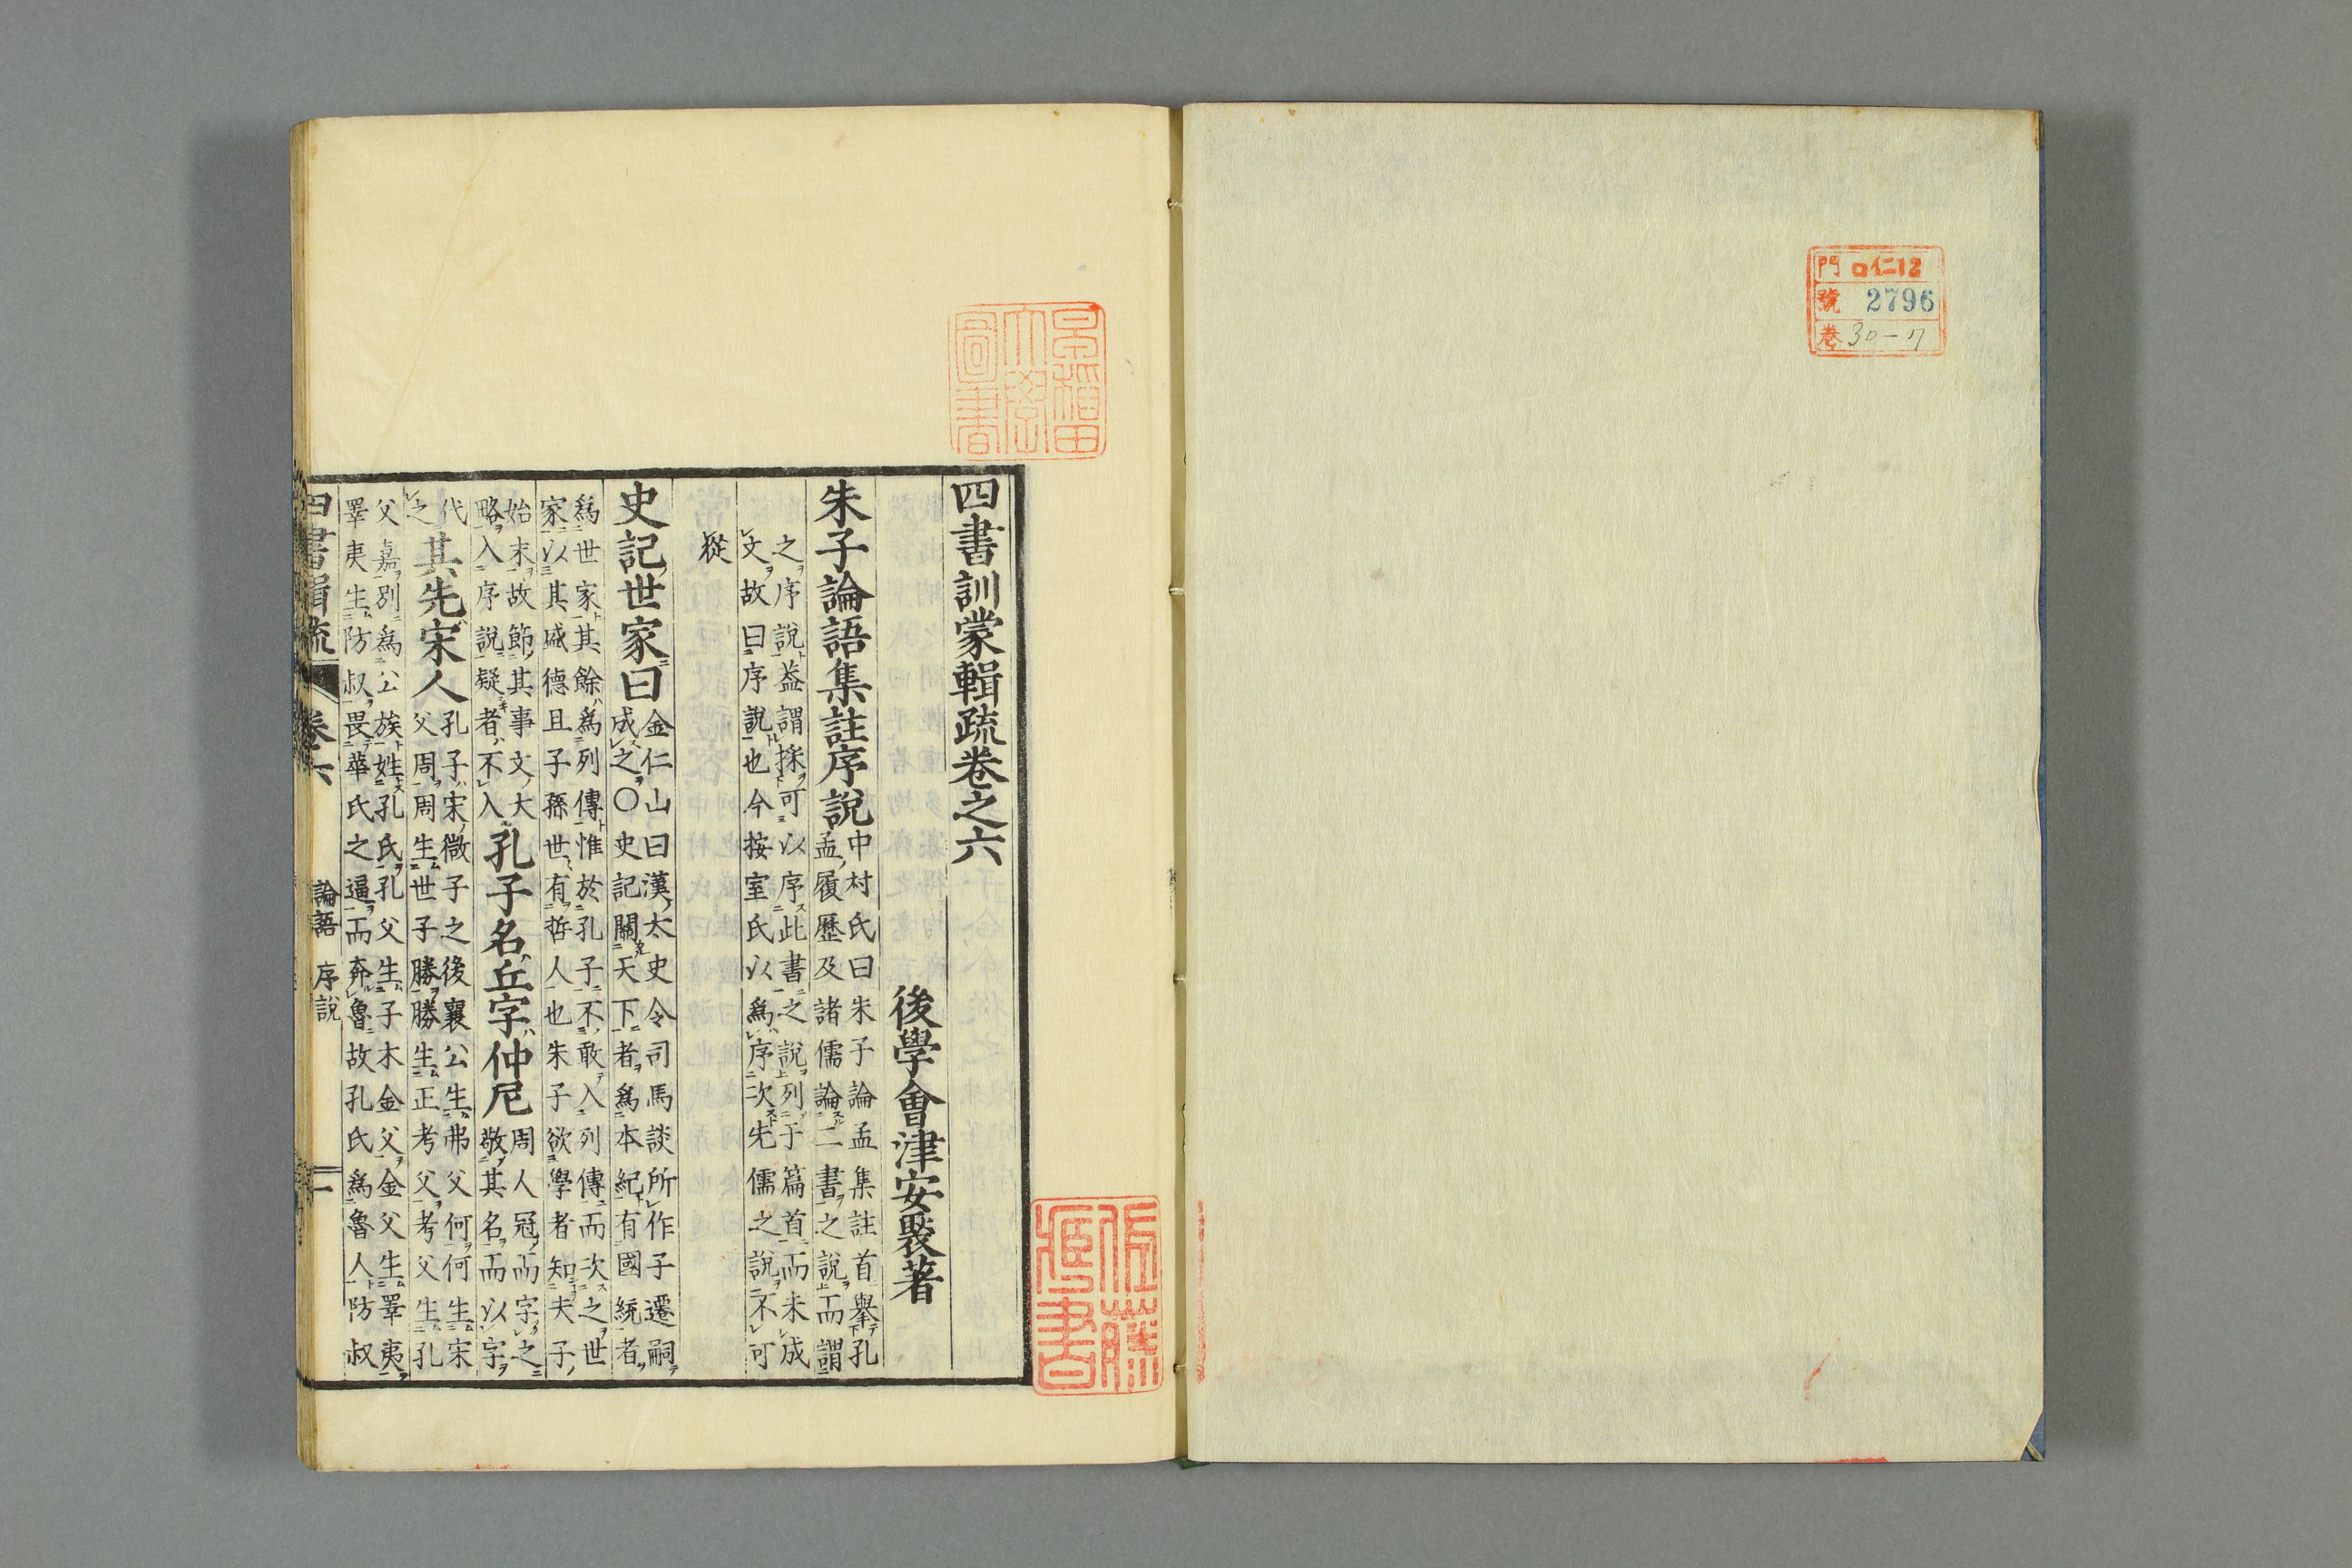 門 口仁12
號 2796
巻 30-7
早稲田
大學
圖書
四書訓蒙輯疏卷之六
後學會津安褧著
朱子論語集註序說
中村氏曰朱子論孟集註首擧孔
孟履歷及諸儒論二書之說而謂
之序說蓋謂採可以序此書之說列于篇首而未成
文故曰序說也今按室氏以爲序次先儒之說不可
從
史記世家曰
金仁山曰漢太史令司馬談所作子遷嗣
成之〇史記關天下者爲本紀有國統者
爲世家其餘爲列傳惟於孔子不敢入列傳而次之世
家以其盛德且子孫世有哲人也朱子欲學者知夫子
始末故節其事文大
略入序說疑者不入
孔子名丘字仲尼
周人冠而字之
敬其名而以字
代
之
其先宋人
孔子宋微子之後襄公生弗父何何生宋
父周周生世子勝勝生正考父考父生孔
父嘉別爲公族姓孔氏孔父生子木金父金父生睪夷
睪夷生防叔畏華氏之逼而奔魯故孔氏爲魯人防叔
四書輯疏 卷六 論語 序說 一
佐藤
藏書